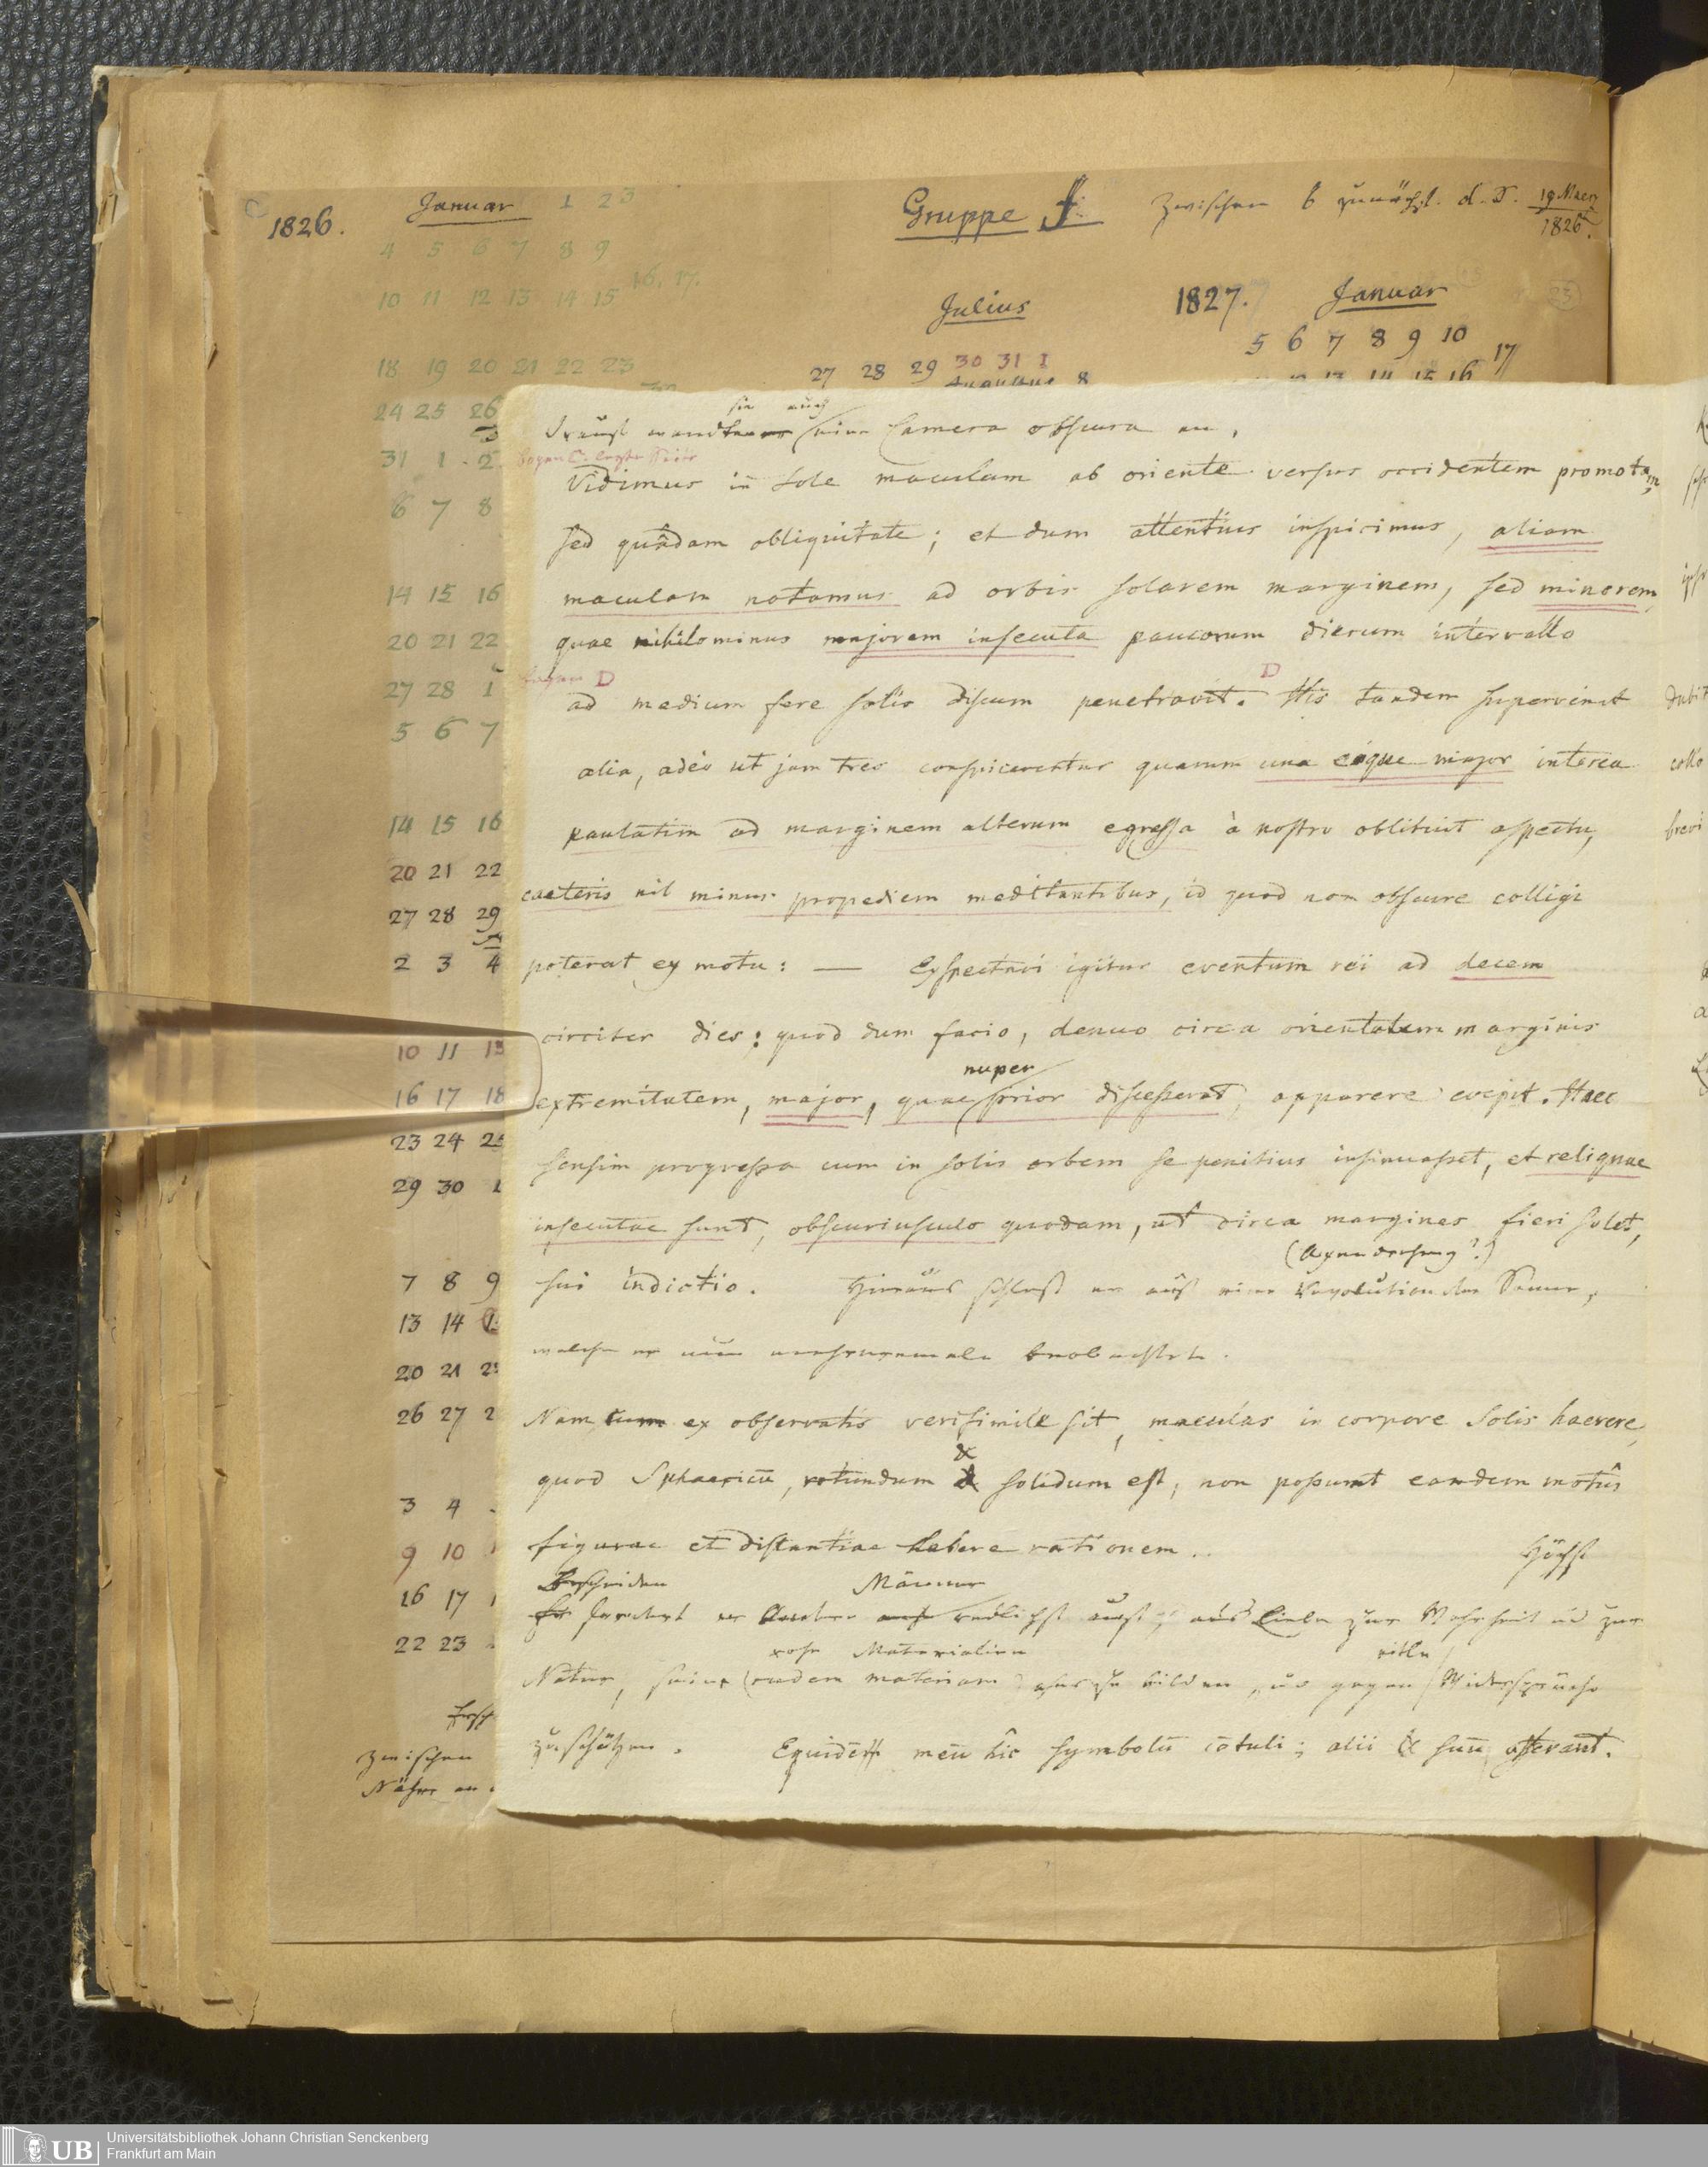 1826.
Januar 1 2 3
4 5 6 7 8 9
10 11 12 13 14 15 16. 17.
18 19 20 21 22 23
24 25 26
31 1 2
6 7 8
14 15 16
20 21 22
27 28 1
5 6 7
14 15 16
20 21 22
27 28 29
2 3 4
10 11 13
16 17 18
23 24 25
29 30 1
7 8 9
13 14
20 21
26 27 2
3 4
9 10
16 17
22 23
zwischen
Nähe an
Gruppe f. zwischen b zunächst d. D. 19 Maerz
1826.
Julius
27 28 29 30 31 1
8
1827. Januar
5 6 7 8 9 10
17
14 15 16
sie auch
eine Camera obscura an.
Bogen C. erste Seite
Vidimus in Sole maculam ab oriente versus occidentem promotam,
sed quâdam obliquitate; et dum attentius inspicimus, aliam
maculam notamus ad orbis solarem marginem, sed minorem,
quae nihilominus majorem insecuta paucorum dierum intervallo
Bogen D
D
ad medium fere solis discum penetravit. His tandem supervenit
alia, adeo ut jam tres conspicerentur quarum una eaque major interea
paulatim ad marginem alterum egressa à nostro oblituit aspectu,
caeteris nil minus propediem meditantibus, id quod non obscure colligi
poterat ex motu: — Exspectavi igitur eventum rei ad decem
circiter dies: quod dum facio, denuo circa orientalem marginis
nuper
extremitatem, major, quae prior discesserat, apparere coepit. Haec
sensim progressa cum in solis orbem se penitius insinuasset, et reliquae
insecutae sunt, obscuriusculo quodam, ut circa margines fieri solet,
(Axendrehung?)
sui indictio. Hieraus schloß er auf eine Revolution der Sonne,
welche er nun mehreremale beobachtete.
Nam, cum ex observatis verisimile sit, maculas in corpore Solis haerere,
&
quod Sphaericū, rotundum & solidum est, non possunt eandem motûs
figurae et distantiae habere rationem.. Höchst
Bescheiden Männer
fordert er redlichst auf, aus Liebe zur Wahrheit und zur
rohe Materialien eitle
Natur, seine (rudem materiam) auszubilden, und gegen Widersprüche
zu schützen. Equidem meū hîc symbolū cōtuli; alii & suū afferant.
Universitätsbibliothek Johann Christian Senckenberg
Frankfurt am Main
UB